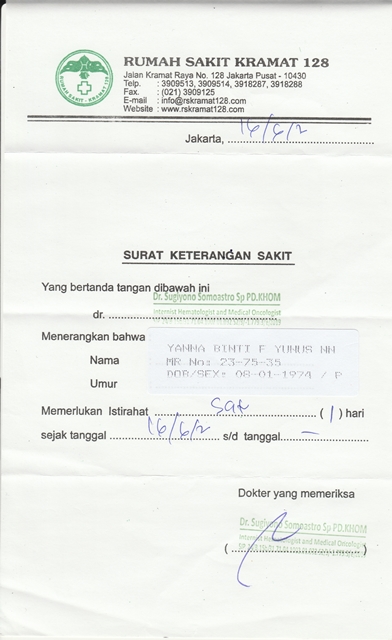 RUMAH SAKIT KRAMAT 128
Jalan Kramat Raya No. 128 Jakarta Pusat - 10430
Telp. : 3909513, 3909514, 3918287, 3918288
Fax. : (021) 3909125
E-mail : info@rskramat128.com
Website : www.rskramat128.com
RUMAH SAKIT KRAMAT 128
Jakarta, 16/6/2
SURAT KETERANGAN SAKIT
Yang bertanda tangan dibawah ini
Dr. Sugiyono Somoastro Sp PD.KHOM
Internist Hematologist and Medical Oncologist
dr.
Menerangkan bahwa
YANNA BINTI F YUNUS NN
Nama
MR No: 23-75-35
Umur
DOB/SEX: 08-01-1974 / P
Memerlukan Istirahat satu (1) hari
sejak tanggal 16/6/2 s/d tanggal -
Dokter yang memeriksa
Dr. Sugiyono Somoastro Sp PD.KHOM
Internist Hematologist and Medical Oncologist